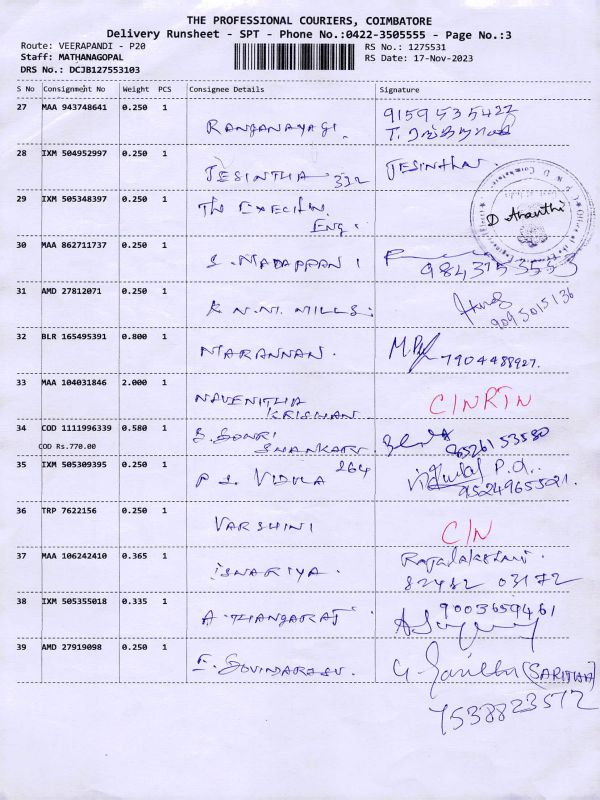 THE PROFESSIONAL COURIERS, COIMBATORE
Delivery Runsheet - SPT - Phone No.:0422-3505555 - Page No.:3
Route: VEERAPANDI - P20
RS No.: 1275531
Staff: MATHANAGOPAL
RS Date: 17-Nov-2023
DRS No.: DCJB127553103
S No Consignment No Weight PCS Consignee Details Signature
27 MAA 943748641 0.250 1
9159535422
RANGANAYAGI.
28 IXM 504952997 0.250 1
JESINTHA 332
JESINTHA.
29 IXM 505348397 0.250 1
THE EXECUTIVE
ENG.
D. Ananthi
30 MAA 862711737 0.250 1
S. MADAPPAN 1
9843753553
31 AMD 27812071 0.250 1
K.N.M. MILLS.
9095015136
32 BLR 165495391 0.800 1
MARANNAN.
7904488927.
33 MAA 104031846 2.000 1
NAVENITHA
KRISHNAN.
C/NRTN
34 COD 1111996339 0.580 1
COD Rs.770.00
S. GOWRI
SHANKARI.
8652615 3580
35 IXM 505309395 0.250 1
P S. VIDULA 264
P.S.
9524965521.
36 TRP 7622156 0.250 1
VARSHINI
C/N
37 MAA 106242410 0.365 1
ISWARIYA.
Rajalakshmi.
82482 03172
38 IXM 505355018 0.335 1
A. THANGARAJ
9003659461
39 AMD 27919098 0.250 1
E. GOVINDARASU.
G. Saritha (SARITHA)
7538823572